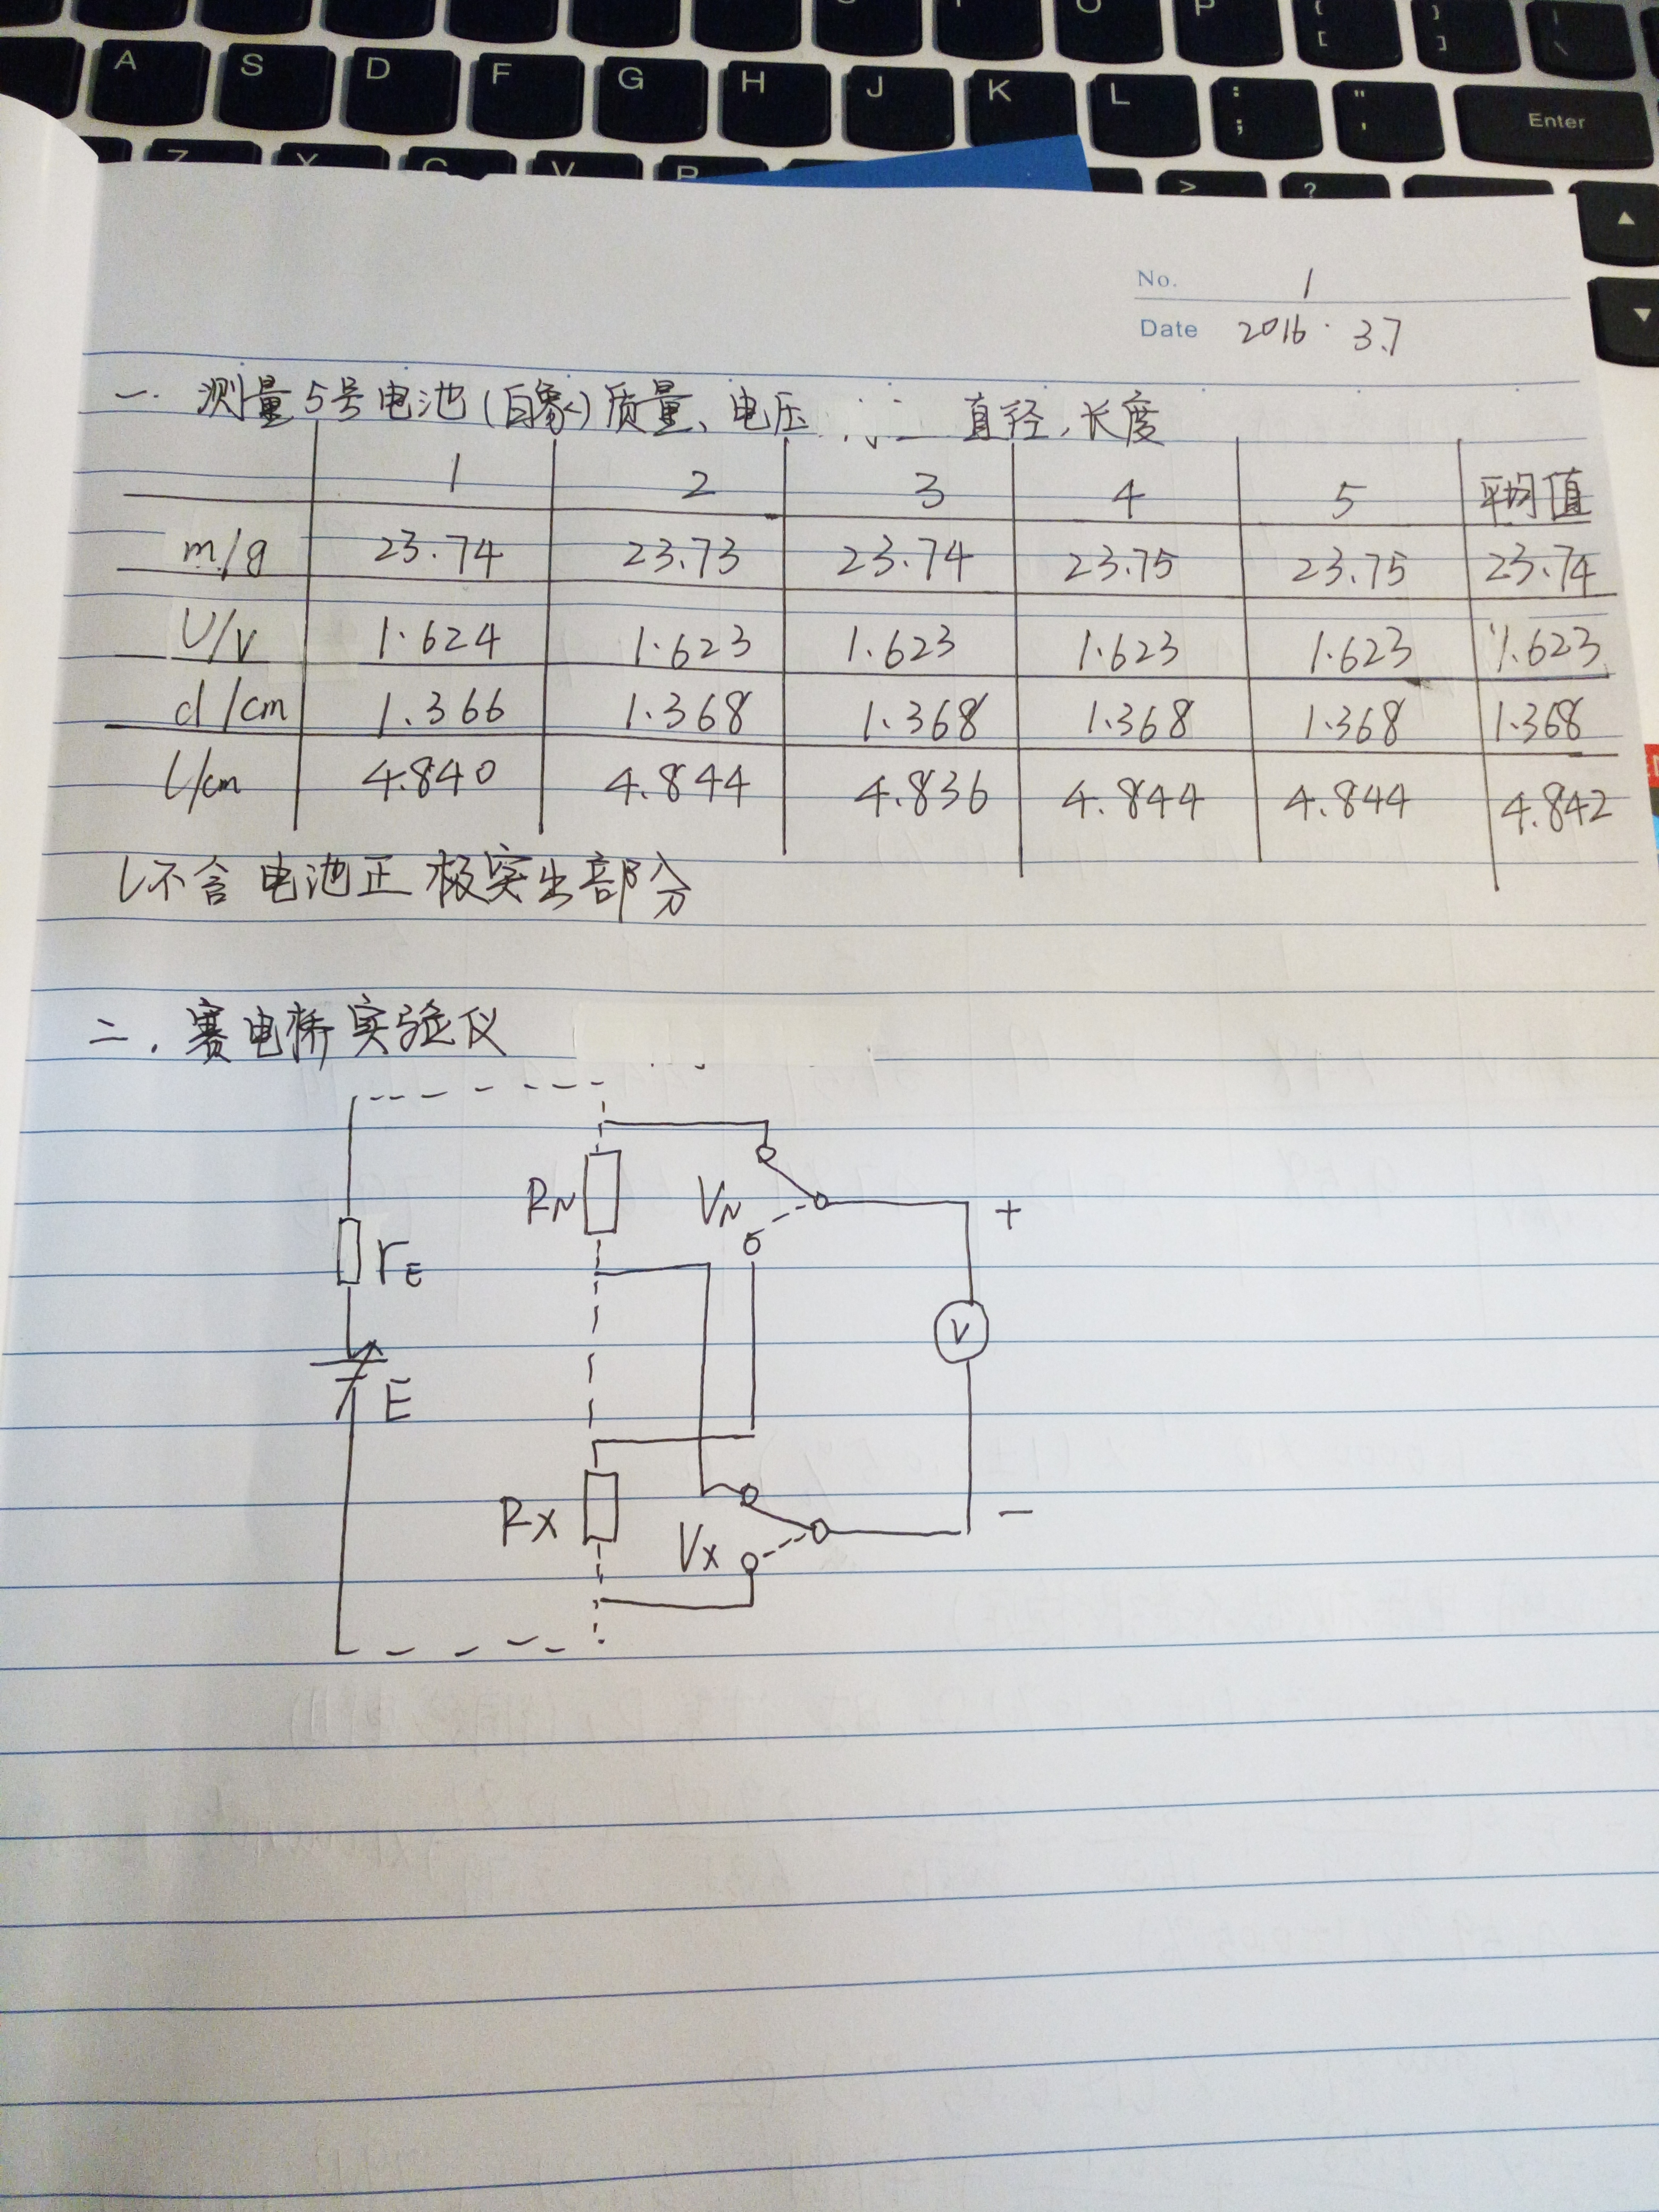 O P { [ } ] | \
A S D F G H J K L : ; " ' Enter
Z X C V B > ?
No. 1
Date 2016.3.7
一. 测量5号电池(白象)质量、电压 直径,长度
1 2 3 4 5 平均值
m/g 23.74 23.73 23.74 23.75 23.75 23.74
U/V 1.624 1.623 1.623 1.623 1.623 1.623
d/cm 1.366 1.368 1.368 1.368 1.368 1.368
l/cm 4.840 4.844 4.836 4.844 4.844 4.842
l不含电池正极突出部分
二. 赛电桥实验仪
RN VN +
rE
V
E
RX VX −